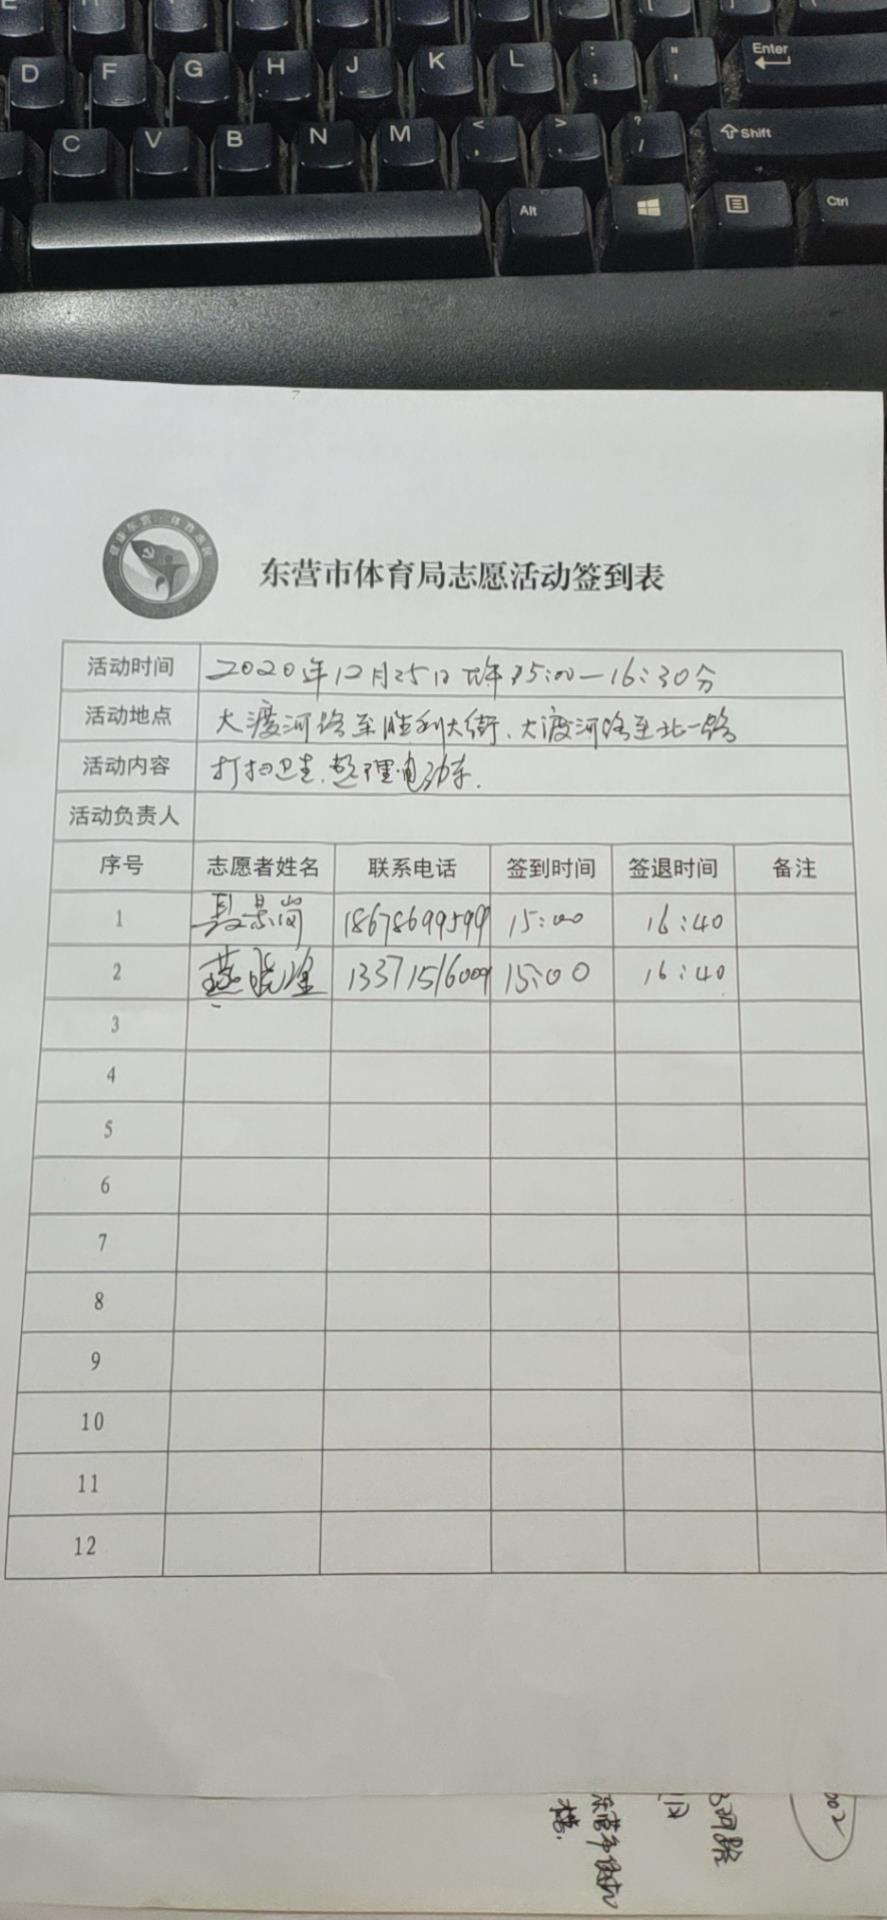 D F G H J K L : ; " ' Enter
C V B N M < , > . ? / Shift
Alt Ctrl
东营市体育局志愿活动签到表
活动时间 2020年12月25日下午15:00—16:30分
活动地点 大渡河路至胜利大街、大渡河路至北一路
活动内容 打扫卫生、整理电动车.
活动负责人
序号 志愿者姓名 联系电话 签到时间 签退时间 备注
1 段景岗 18678699599 15:00 16:40
2 燕晓 13371516009 15:00 16:40
3
4
5
6
7
8
9
10
11
12
002
东营市
楼.